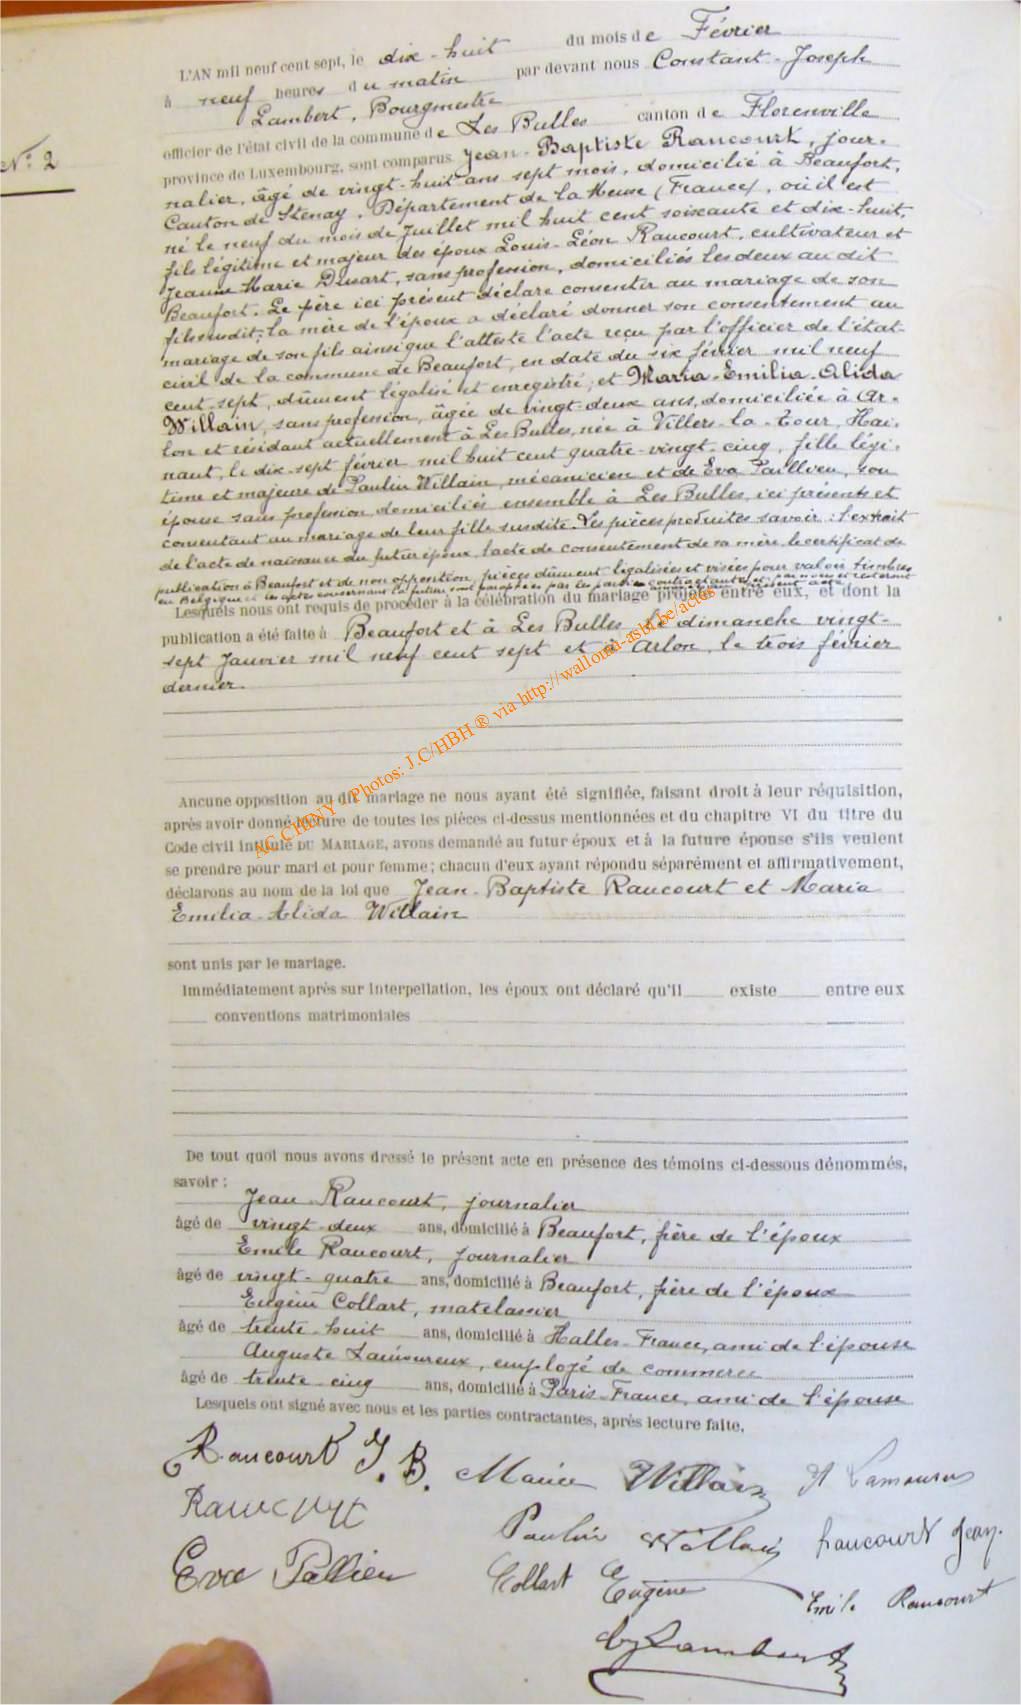 L'AN mil neuf cent sept, le dix-huit du mois de Février
à neuf heures du matin par devant nous Constant-Joseph
Lambert, Bourgmestre
officier de l'état civil de la commune de Les Bulles canton de Florenville
N° 2
province de Luxembourg, sont comparus Jean-Baptiste Raucourt, jour-
nalier, âgé de vingt-huit ans sept mois, domicilié à Beaufort,
Canton de Stenay, Département de la Meuse (France), où il est
né le neuf du mois de Juillet mil huit cent soixante et dix-huit,
fils légitime et majeur des époux Louis-Léon Raucourt, cultivateur et
Jeanne Marie Dusart, sans profession, domiciliés les deux au dit
Beaufort. Le père ici présent déclare consentir au mariage de son
fils susdit; la mère de l'époux a déclaré donner son consentement au
mariage de son fils ainsi que l'atteste l'acte reçu par l'officier de l'état-
civil de la commune de Beaufort, en date du six février mil neuf
cent-sept, dûment légalisé et enregistré; et Maria-Emilia-Alida
Willain, sans profession, âgée de vingt-deux ans, domiciliée à Ar-
lon et résidant actuellement à Les Bulles, née à Villers-la-Tour, Hai-
naut, le dix-sept février mil huit cent quatre-vingt-cinq, fille légi-
time et majeure de Paulin Willain, mécanicien et de Eva Paillveu, son
épouse sans profession, domiciliés ensemble à Les Bulles, ici présents et
consentant au mariage de leur fille susdite. Les pièces produites savoir: l'extrait
de l'acte de naissance du futur époux, l'acte de consentement de sa mère, le certificat de
publication à Beaufort et de non opposition, pièces dûment légalisées et visées pour valoir timbres
en Belgique et les actes concernant la future sont paraphés par les parties contractantes, par nous et resteront présent acte
Lesquels nous ont requis de procéder à la célébration du mariage projeté entre eux, et dont la
publication a été faite à Beaufort et à Les Bulles le dimanche vingt-
sept Janvier mil neuf cent sept et à Arlon, le trois février
dernier.
AC CHINY - Photos: J.C/HBH ® via http://wallonia-asbl.be/actes
Aucune opposition au dit mariage ne nous ayant été signifiée, faisant droit à leur réquisition,
après avoir donné lecture de toutes les pièces ci-dessus mentionnées et du chapitre VI du titre du
Code civil intitulé DU MARIAGE, avons demandé au futur époux et à la future épouse s'ils veulent
se prendre pour mari et pour femme; chacun d'eux ayant répondu séparément et affirmativement,
déclarons au nom de la loi que Jean-Baptiste Raucourt et Maria
Emilia-Alida Willain
sont unis par le mariage.
Immédiatement après sur interpellation, les époux ont déclaré qu'il existe entre eux
conventions matrimoniales
De tout quoi nous avons dressé le présent acte en présence des témoins ci-dessous dénommés,
savoir:
Jean Raucourt, journalier
âgé de vingt-deux ans, domicilié à Beaufort, frère de l'époux
Emile Raucourt, journalier
âgé de vingt-quatre ans, domicilié à Beaufort, frère de l'époux
Eugène Collart, matelassier
âgé de trente-huit ans, domicilié à Halles-France, ami de l'épouse
Auguste Lamoureux, employé de commerce
âgé de trente-cinq ans, domicilié à Paris-France, ami de l'épouse
Lesquels ont signé avec nous et les parties contractantes, après lecture faite,
Raucourt J. B. Maria Willain A Lamoureux
Raucourt
Paulin Willain Raucourt Jean
Eva Pallieu Collart Eugène
Emile Raucourt
Lambert